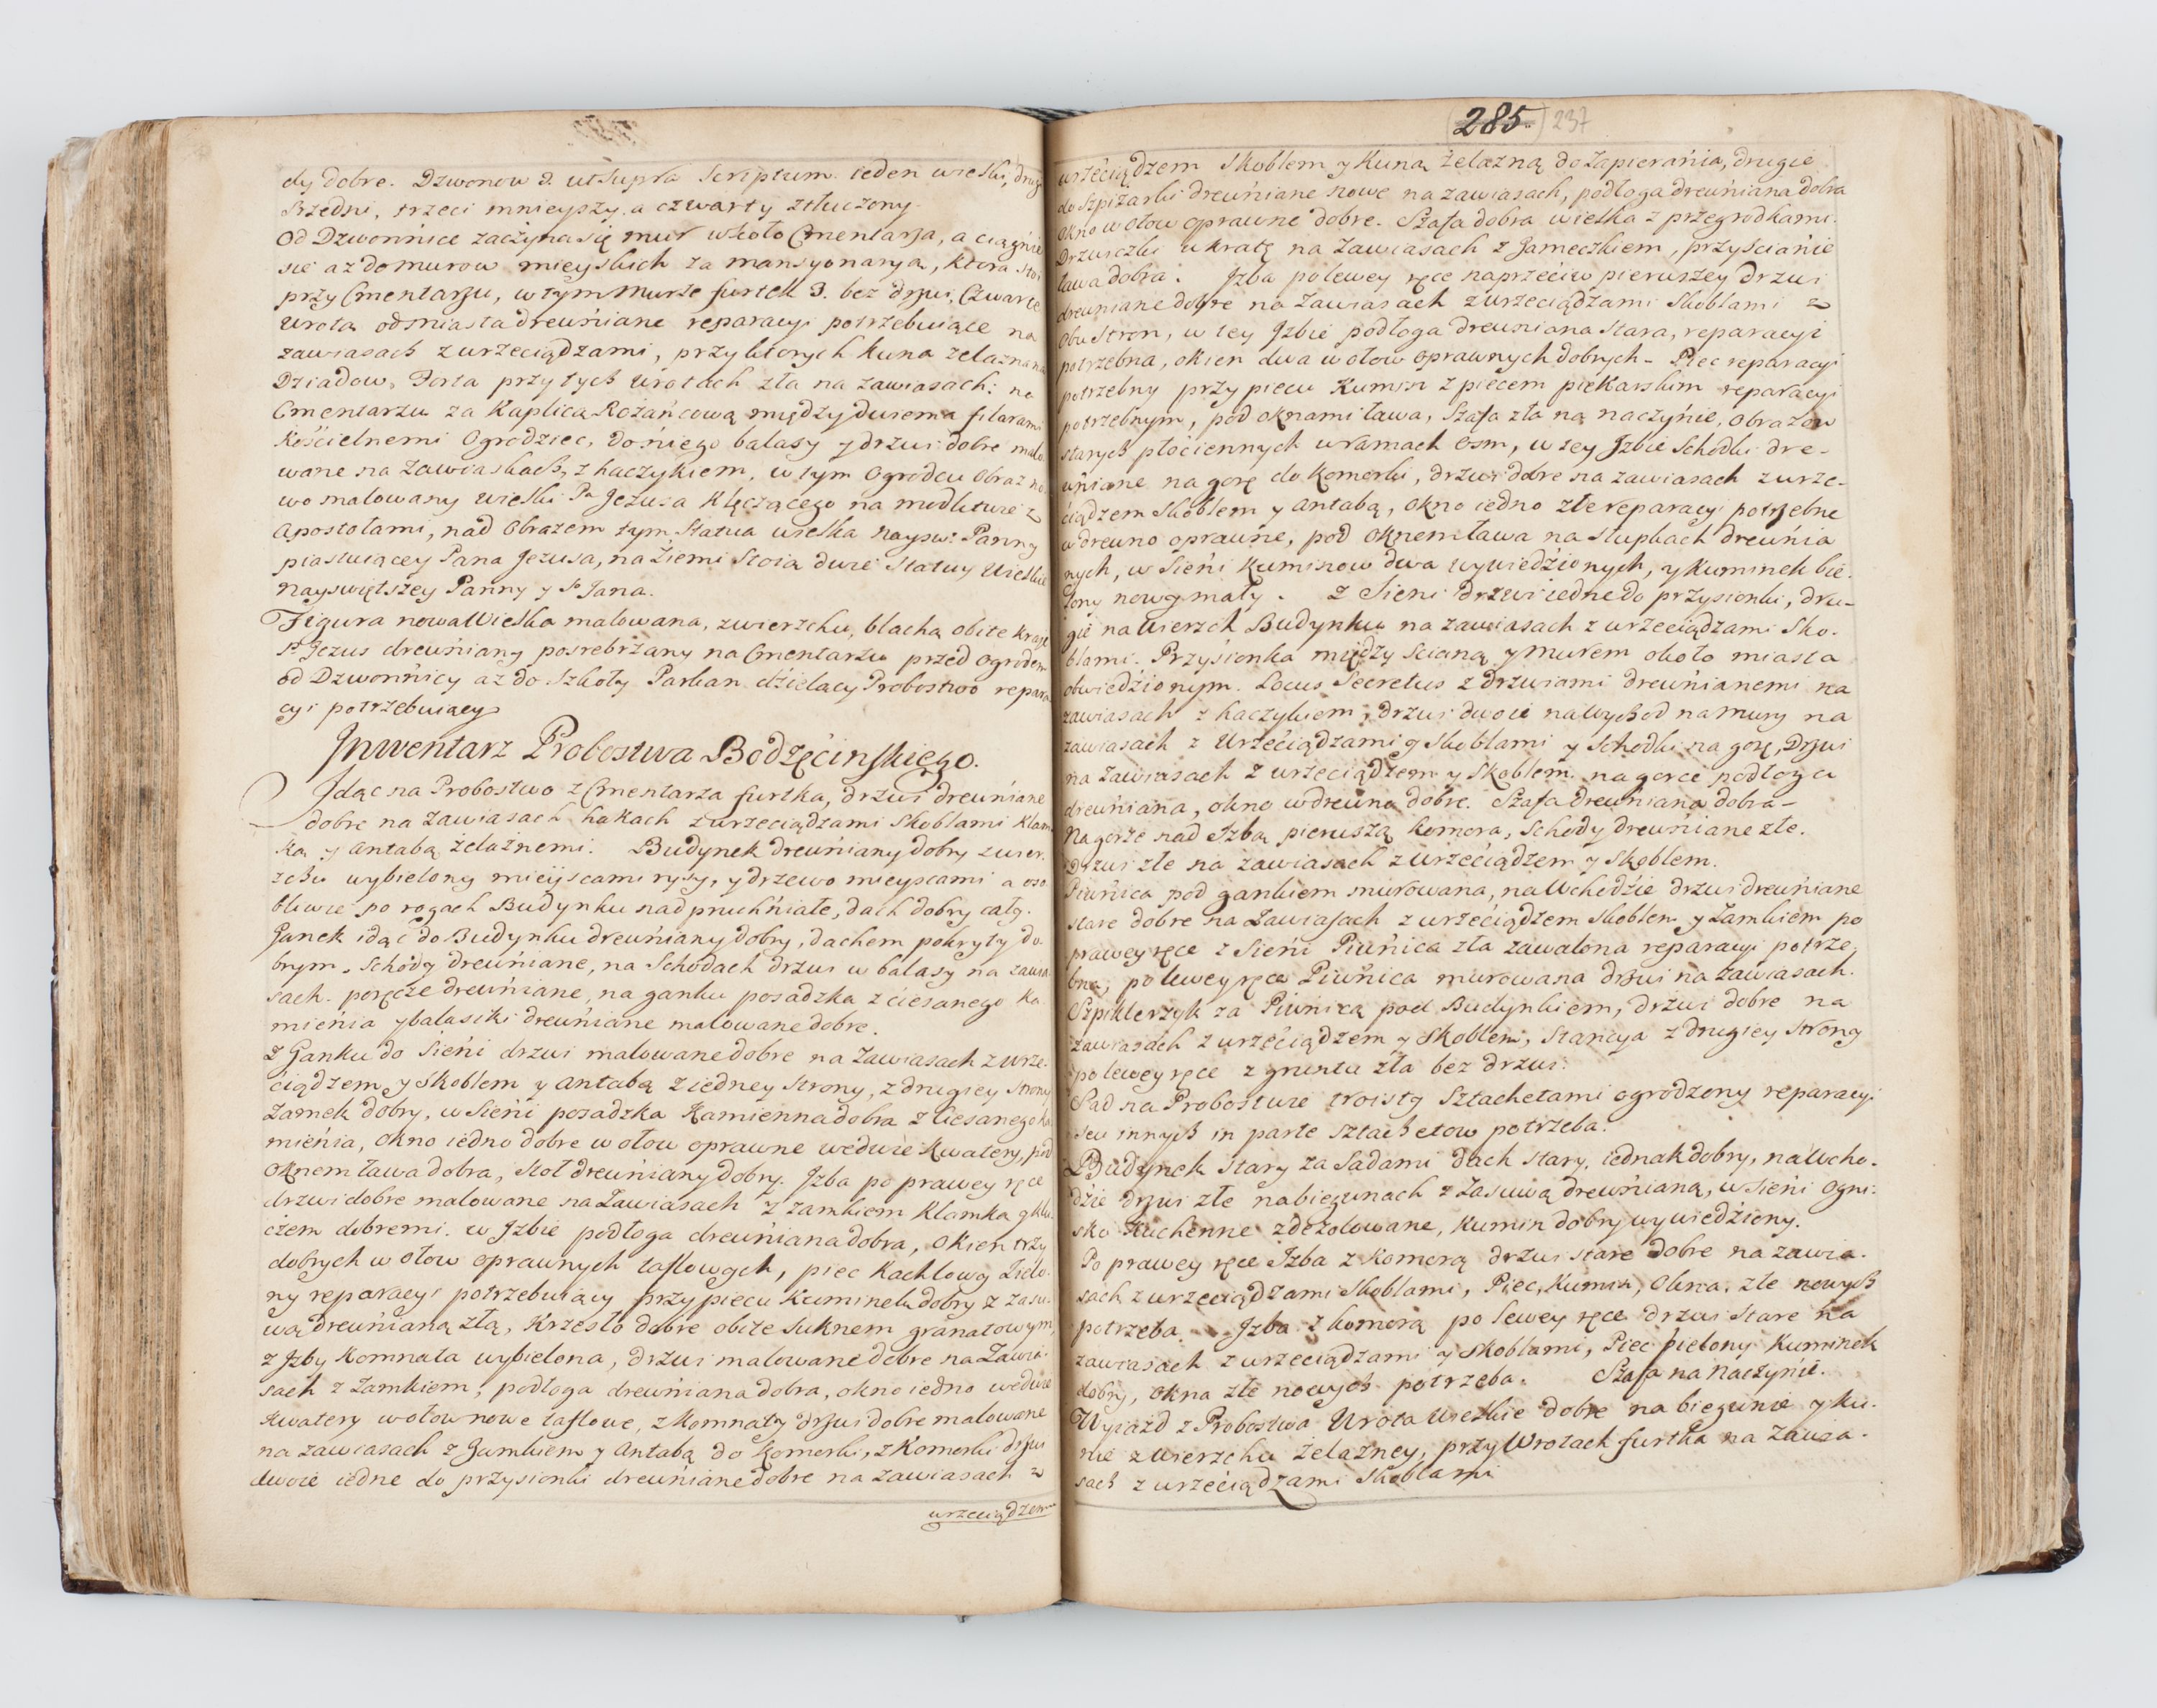 dy dobre. Dzwonow 3. ut supra Scriptum ieden wielki, drugi
Srzedni, trzeci mnieyszy, a czwarty ztłuczony.
Od Dzwonnice zaczyna się mur wkoło Cmentarza, a ciągnie
się az do murow mieyskich za mansyonaryą, ktora stoi
przy Cmentarzu, w tym Murze furtek 3. bez drzwi, Czwarte
wrota od miasta drewniane reparacyi potrzebuiące na
zawiasach z wrzeciądzami, przy ktorych kuna zelazna na
Dziadow, Forta przy tych wrotach zła na zawiasach: na
Cmentarzu za Kaplicą Rożańcową między dwiema filarami
Kościelnemi Ogrodziec, do niego balasy y drzwi dobre malo
wane na Zawiaskach, z haczykiem, w tym Ogrodcu Obraz no
wo malowany wielki Pa Jezusa Klęczącego na modlitwie z
Apostołami, nad Obrazem tym Statua wielka Nayśw: Panny
piastuiącey Pana Jezusa, na Ziemi Stoią dwie Statuy Wielkie
Nayswiętszey Panny y S. Jana.
Figura nowa Wielka malowana, zwierzchu, blachą obite kraje
P. Jezus drewniany posrebrzany na Cmentarzu przed ogrodem
od Dzwonnicy az do Szkoły Parkan dzielacy Probostwo repara
cyi potrzebuiący
Inwentarz Probostwa Bodzęcinskiego.
Idąc na Probostwo z Cmentarza furtka, drzwi drewniane
dobre na zawiasach hakach z wrzeciądzami Skoblami Klam
ką y Antabą żelaźnemi. Budynek drewniany dobry zwier.
zchu wybielony mieyscami rysy, y drzewo mieyscami a oso
bliwie po rogach Budynku nadpruchniałe, dach dobry cały.
Ganek idąc do Budynku drewniany dobry, dachem pokryty do
brym, Schody drewniane, na Schodach drzwi w balasy na zawia
sach. poręcze drewniane, na ganku posadzka z ciesanego Ka
mienia y balasiki drewniane malowane dobre.
Z Ganku do Sieni drzwi malowane dobre na Zawiasach z wrze-
ciądzem y Skoblem y Antabą z iedney Strony, z drugiey Strony
Zamek dobry, w Sieni posadzka Kamienna dobra z Ciesanego ka
mienia, Okno iedno dobre w ołow oprawne wedwie Kwatery, pod
Oknem ława dobra, Stoł drewniany dobry. Izba po prawey ręce
drzwi dobre malowane na Zawiasach z zamkiem Klamką y klu
czem dobremi. w Izbie podłoga drewniana dobra, Okien trzy
dobrych w ołow oprawnych taflowych, piec Kachlowy Zielo.
ny reparacyi potrzebuiący przy piecu Kuminek dobry z zasu.
wą drewnianą złą, Krzesło dobre obite Suknem granatowym,
z Izby Komnata wybielona, drzwi malowane dobre na Zawia.
sach z Zamkiem, podłoga drewniana dobra, okno iedno wedwie
Kwatery w ołow nowe taflowe, z Komnaty drzwi dobre malowane
na zawiasach z Zamkiem y Antabą do Komorki, z Komorki drzwi
dwoie iedne do przysionki drewniane dobre na zawiasach z
wrzeciądzem
285. 237
wrzeciądzem Skoblem y Kuną żelazną do Zapierania, drugie
do Szpizarki drewniane nowe na zawiasach, podłoga drewniana dobra
Okno w ołow oprawne dobre. Szafa dobra wielka z przegrodkami.
Drzwiczki w kratę na Zawiasach z Zameczkiem, przy Scianie
ława dobra. Izba po lewey ręce naprzeciw pierwszey drzwi
drewniane dobre na Zawiasach z wrzeciądzami Skoblami z
Obu Stron, w tey Izbie podłoga drewniana Stara, reparacyi
potrzebna, okien dwa w ołow oprawnych dobrych - Piec reparacyi
potrzebny przy piecu Kumin z piecem piekarskim reparacyi
potrzebnym, pod oknami ława, Szafa zła na naczynie, Obrazow
starych płociennych w ramach Osm, w tey Izbie Schodki dre-
wniane na gorę do Komorki, drzwi dobre na zawiasach z wrze-
ciądzem Skoblem y Antabą, Okno iedno złe reparacyi potrzebne
w drewno oprawne, pod Oknem ława na Słupkach drewnia
nych, w Sieni Kuminow dwa wywiedzionych, y Kuminek bie.
lony nowy mały. Z Sieni drzwi iedne do przysionki, dru-
gie na wierzch Budynku na zawiasach z wrzeciądzami Sko.
blami. Przysionka między Scianą y Murem około miasta
obwiedzionym. Locus Secretus z drzwiami drewnianemi na
zawiasach z haczykiem, drzwi dwoie na Wychod na Mury na
zawiasach z Wrzeciądzami y Skoblami y Schodki na gorę, Drzwi
na Zawiasach z wrzeciądzem y Skoblem. na gorce podłoga
drewniana, okno w drewno dobre. Szafa drewniana dobra -
Na gorze nad Izbą pierwszą Komora, Schody drewniane złe.
Drzwi złe na zawiasach z wrzeciądzem y Skoblem.
Piwnica pod gankiem murowana, na Wchodzie drzwi drewniane
stare dobre na Zawiasach z wrzeciądzem Skoblem y Zamkiem po
prawey ręce z Sieni Piwnica zła zawalona reparacyi potrze.
bna, po lewey ręce Piwnica murowana drzwi na zawiasach.
Szpiklerzyk za Piwnicą pod Budynkiem, drzwi dobre na
zawiasach z wrzeciądzem y Skoblem, Stancya z drugiey Strony
po lewey ręce z gruntu zła bez drzwi:
Sad na Probostwie troisty Sztachetami ogrodzony reparacyi
seu innych in parte sztachetow potrzeba.
Budynek stary za Sadami dach stary, iednak dobry, na Wcho.
dzie drzwi złe na biegunach z Zasuwą drewnianą, w Sieni Ogni:
sko Kuchenne zdezolowane, Kumin dobry wywiedziony.
Po prawey ręce Izba z Komorą drzwi stare dobre na zawia.
sach z wrzeciądzami Skoblami, Piec, Kumin, Okna, złe nowych
potrzeba. Izba z komorą po lewey ręce drzwi stare na
zawiasach z wrzeciądzami y Skoblami, Piec bielony Kuminek
dobry, okna złe nowych potrzeba. Szafa na Naczynie.
Wyiazd z Probostwa Wrota Wielkie dobre na biegunie y ku.
nie z wierzchu żelazney, przy Wrotach furtka na Zawia.
sach z wrzeciądzami Skoblami